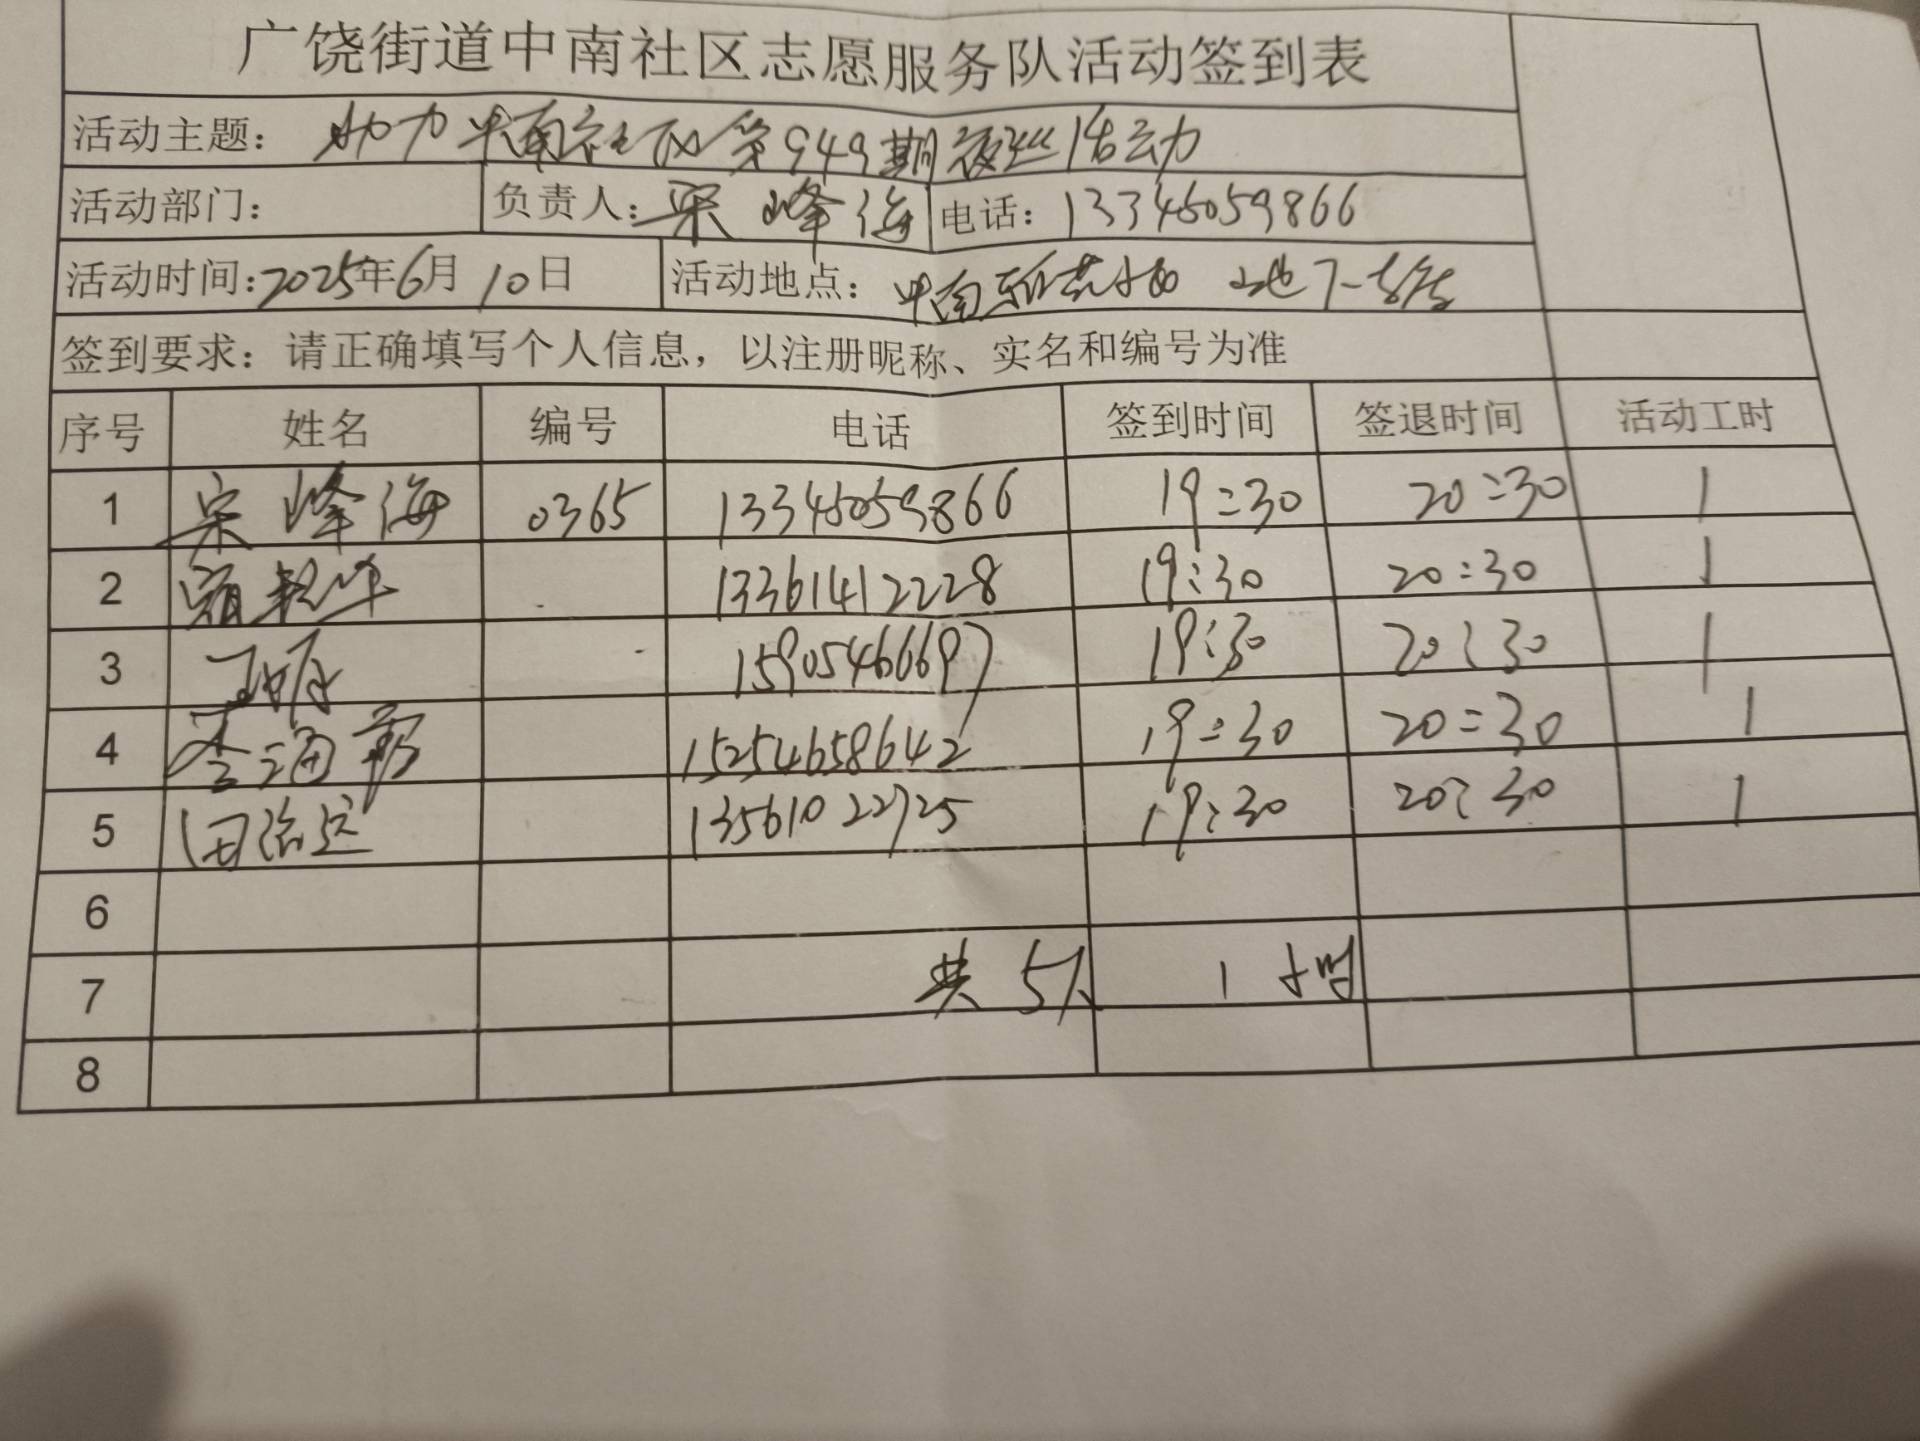 广饶街道中南社区志愿服务队活动签到表
活动主题: 助力中南社区第949期夜巡活动
活动部门: 负责人: 宋峰海 电话: 13345059866
活动时间: 2025年6月10日 活动地点: 中南 地下
签到要求: 请正确填写个人信息，以注册昵称、实名和编号为准
序号 姓名 编号 电话 签到时间 签退时间 活动工时
1 宋峰海 0365 13345059866 19:30 20:30 1
2 13361412228 19:30 20:30 1
3 15905466697 19:30 20:30 1
4 李海 15254658642 19:30 20:30 1
5 田 13561022725 19:30 20:30 1
6
7 共5人 1小时
8